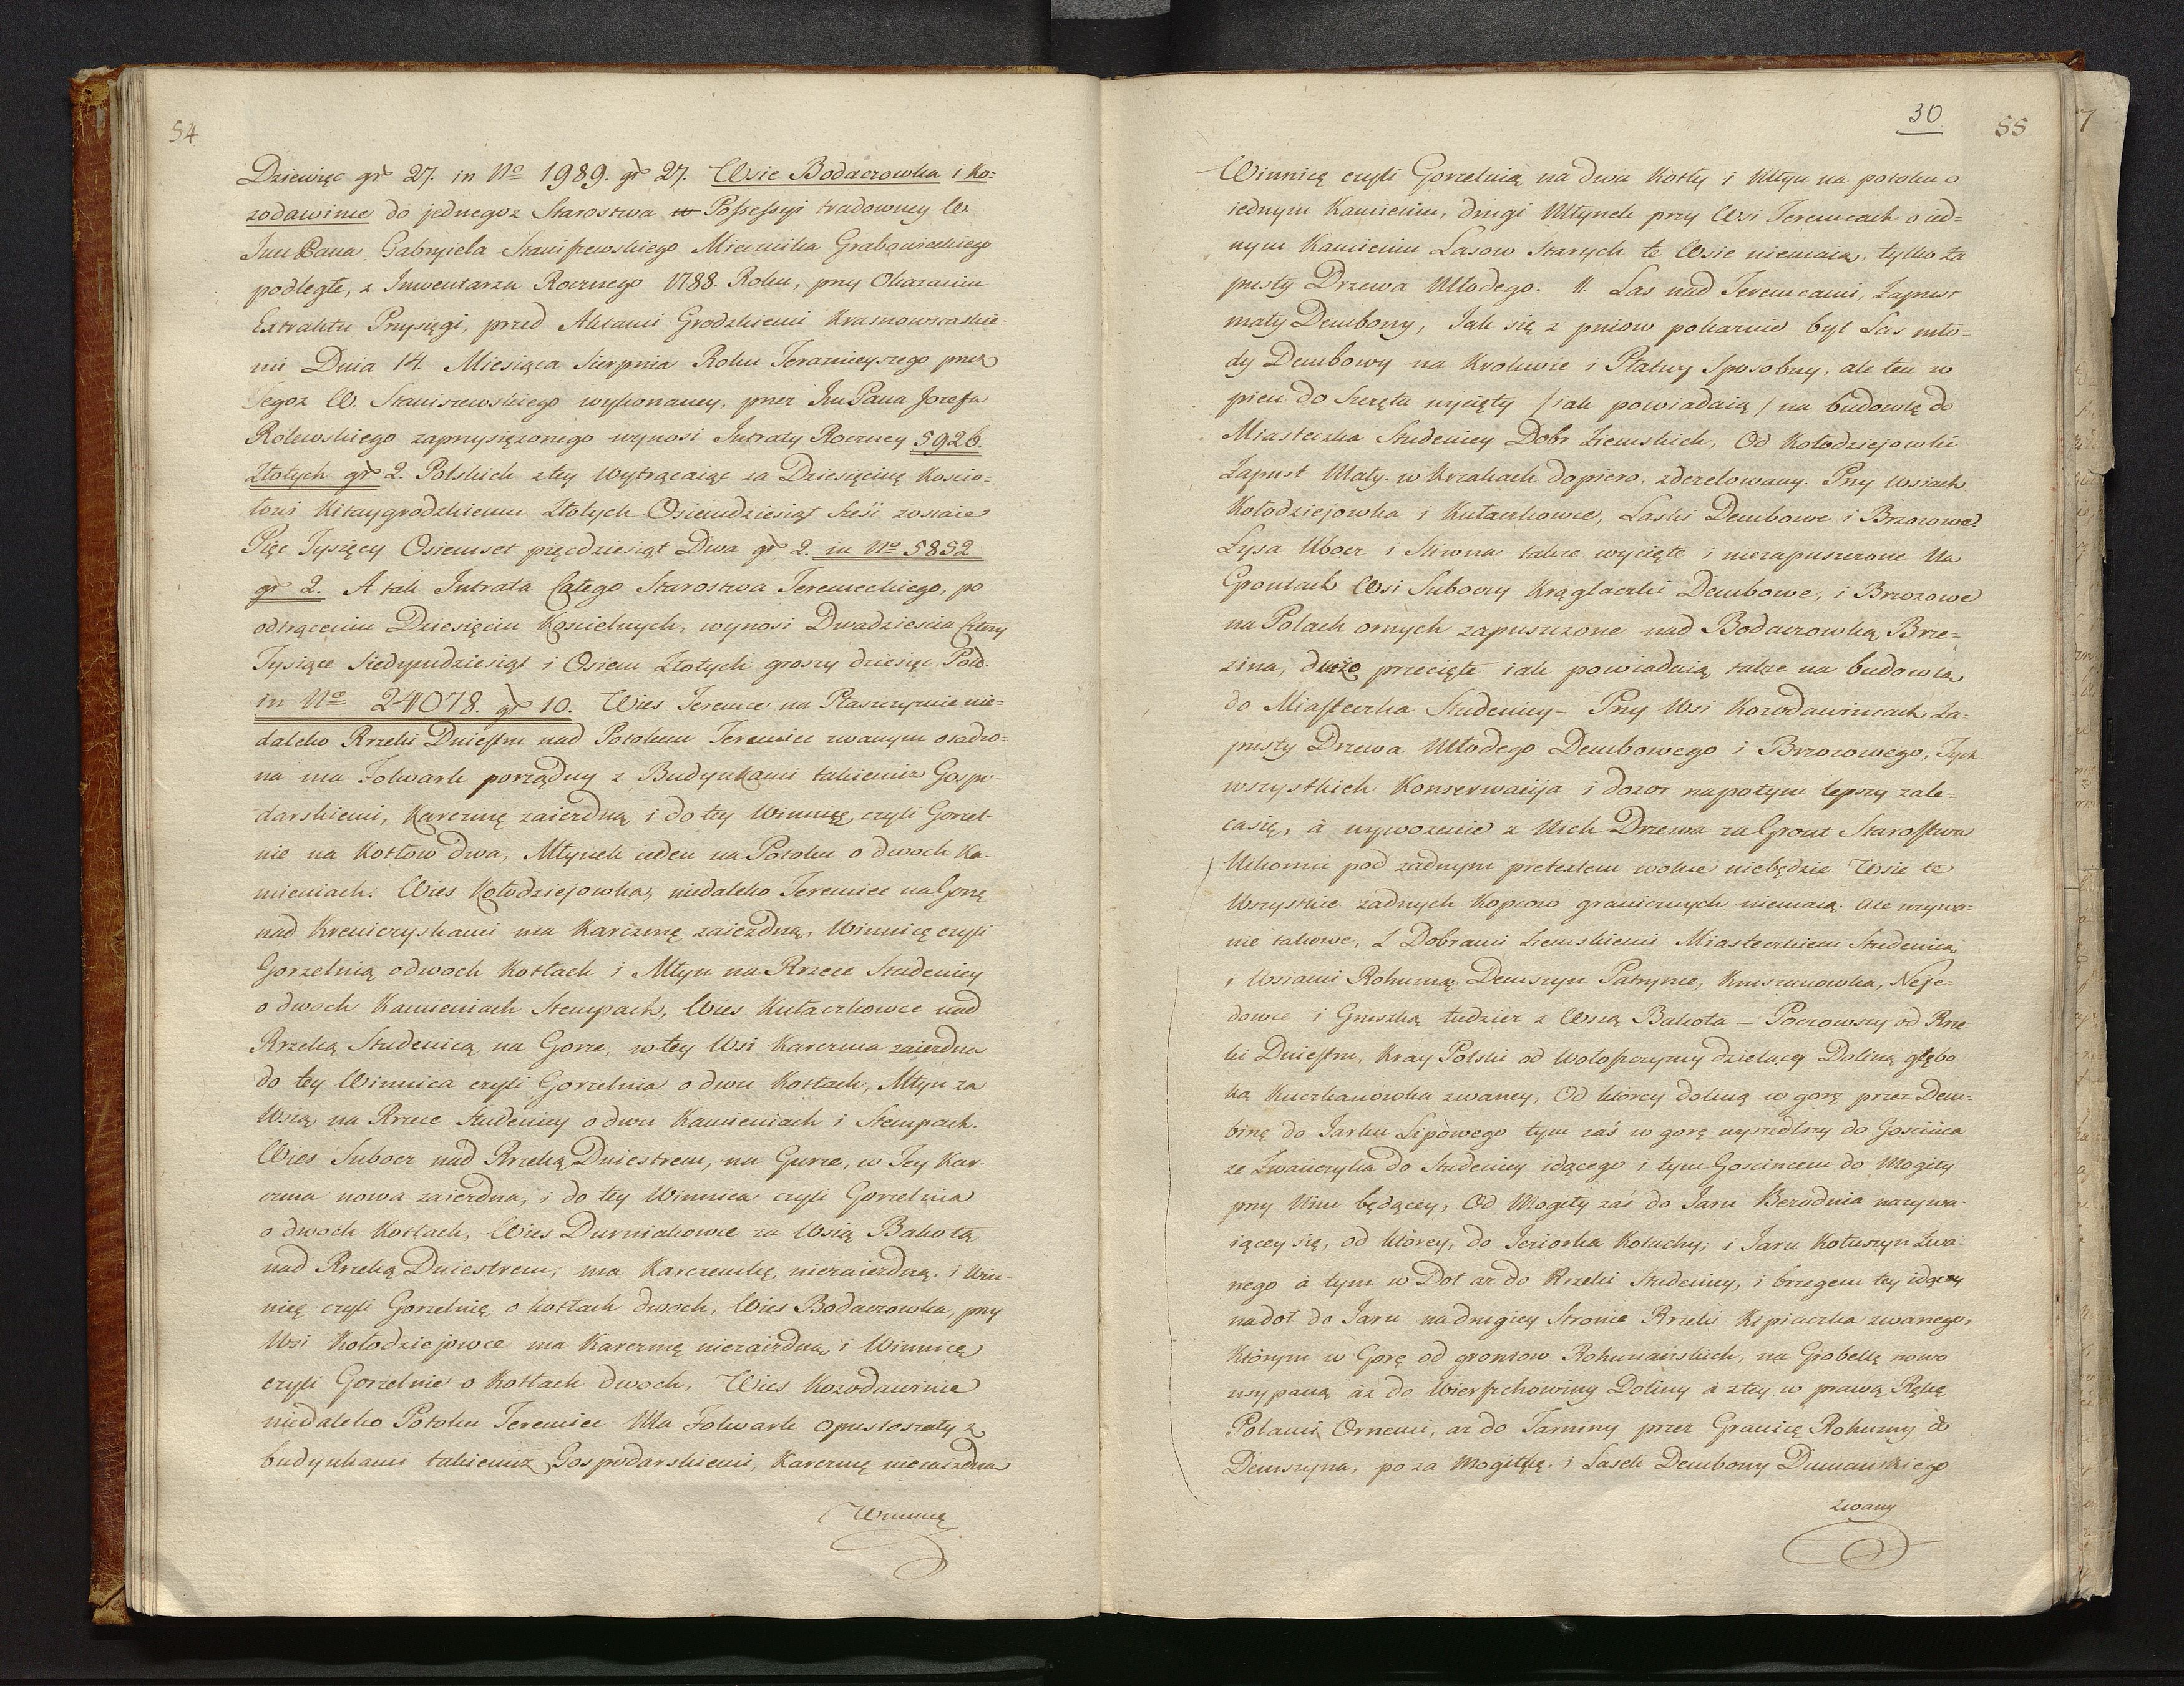 54
Dziewięc gr 27. in No 1989. gr 27. Wsie Bodaczowka i Ko=
zodawince do jednegoz Starostwa w Possessyi tradowney W
Jm Pana Gabryela Staniszewskiego Miecznika Grabowieckiego
podległe, z Inwentarza Rocznego 1788. Roku, przy Okazaniu
Extraktu Przysięgi, przed Aktami Grodzkiemi Krasnowstawskie=
mi Dnia 14. Miesiąca Sierpnia Roku Teraznieyszego przez
Tegoz W. Staniszewskiego wykonaney, przez Jm Pana Jozefa
Rolewskiego zaprzysięzonego wynosi Intraty Roczney 5926.
Złotych gr 2. Polskich z tey Wytrącaiąc za Dziesięcinę Koscio=
łowi Kitaygrodzkiemu Złotych Osiemdziesiąt Szesc zostaie
Pięc Tysięcy Osiemset pięcdziesiąt Dwa gr 2. in No 5852
gr 2. A tak Intrata Całego Starostwa Teremeckiego, po
odtrąceniu Dziesięcin Koscielnych, wynosi Dwadziescia Cztery
Tysiące Siedymdziesiąt i Osiem Złotych groszy dziesięc Pold.
in No 24078. gr 10. Wies Teremce na Płaszczyznie nie=
daleko Rzeki Dniestru nad Potokiem Teremiec zwanym osadzo=
na ma Folwark porządny z Budynkami takiemiz Gospo=
darskiemi, Karczmę zaiezdną i do tey Winnicę czyli Gorzel=
nie na Kotłow dwa, Młynek ieden na Potoku o dwoch Ka=
mieniach. Wies Kołodziejowka, niedaleko Teremiec na Gorze
nad Kreniczyskami ma Karczmę zaiezdną, Winnicę czyli
Gorzelnią o dwoch Kotłach i Młyn na Rzece Studenicy
o dwoch Kamieniach Stempach, Wies Kułaczkowce nad
Rzeką Studenicą na Gorze, w tey Wsi Karczma zaiezdna
do tey Winnica czyli Gorzelnia o dwu Kotłach, Młyn za
Wsią na Rzece Studenicy o dwu Kamieniach i Stempach.
Wies Subocz nad Rzeką Dniestrem, na Gurze, w Tey Kar=
czma nowa zaiezdna, i do tey Winnica czyli Gorzelnia
o dwoch Kotłach, Wies Durniakowce za Wsią Bakotą
nad Rzeką Dniestrem, ma Karczemkę niezaiezdną, i Win=
nicę czyli Gorzelnię o kotłach dwoch, Wies Bodaczowka, przy
Wsi Kołodziejowce ma Karczmę niezaiezdną i Winnicę
czyli Gorzelnie o Kotłach dwoch, Wies Kozodawince
niedaleko Potoku Teremiec Ma Folwark opustoszały z
budynkami takiemiz Gospodarskiemi, Karczmę niezaiezdna
Winnicę
30
55
Winnicę czyli Gorzelnią na dwa Kotły i Młyn na potoku o
iednym Kamieniu, drugi Młynek przy Wsi Teremcach o ied=
nym Kamieniu Lasow Starych te Wsie niemaią, tylko Za
pusty Drzewa Młodego. 11. Las nad Teremcami, Zapust
mały Dembowy, Jak się z pniow pokazuie był Las mło=
dy Dembowy na Krokwie i Płatwy Sposobny, ale ten w
pień do Szczętu wycięty /iak powiadaią/ na budowlę do
Miasteczka Studenicy Dobr Ziemskich, Od Kołodziejowki
Zapust Mały w Krzakach dopiero, zdezelowany. Przy Wsiach
Kołodziejowka i Kułaczkowce, Laski Dembowe i Brzozowe
Łysa Ubocz i Sliwna takze wycięte i niezapuszczone Na
Gruntach Wsi Suboczy Krąglaczki Dembowe, i Brzozowe
na Polach ornych zapuszczone nad Bodaczowką Brze=
zina, duzo przecięte iak powiadaią takze na budowlą
do Miasteczka Studenicy – Przy Wsi Kozodawincach Za=
pusty Drzewa Młodego Dembowego i Brzozowego, Tych
wszystkich Konserwacija i dozor napotym lepszy zale=
ca się, à wywozenie z Nich Drzewa za Grunt Starostwa
Nikomu pod zadnym pretextem wolne niebędzie. Wsie te
Wszystkie zadnych Kopcow granicznych niemaią. Ale uzywa=
nie takowe, Z Dobrami Ziemskiemi Miasteczkiem Studenicą
i Wsiami Rohuzną Demszyn Patrynce, Kruszanowka, Nefe=
dowce i Gruszką tudziez z Wsią Bakota – Począwszy od Rze
ki Dniestru, Kray Polski od Wołoszczyzny dzielącey Doliną głębo
ką Kuczkanowka zwaney, Od ktorey doliną w gorę przez Dem=
binę do Jarku Lipowego tym zaś w gorę wyszedłszy do Goscinca
ze Zwańczyka do Studenicy idącego i tym Goscincem do Mogiły
przy Nim będącey, Od Mogiły zaś do Jaru Bezodnia nazywa=
iącey się, od ktorey, do Jeziorka Kołuchy, i Jaru Kołuszyn Zwa=
nego à tym w Doł az do Rzeki Studenicy, i brzegiem tey idący
na doł do Jaru na drugiey Stronie Rzeki Kipiaczka zwanego,
Ktorym w Gorę od gruntow Rohuzianskich, na Grobelkę nowo
usypaną áz do Wierzchowiny Doliny à z tey w prawą Rękę
Polami Ornemi, az do Tarniny przez Granicę Rohuzny do
Demszyna, po za Mogiłkę i Lasek Dembowy Dumanskiego
zwany